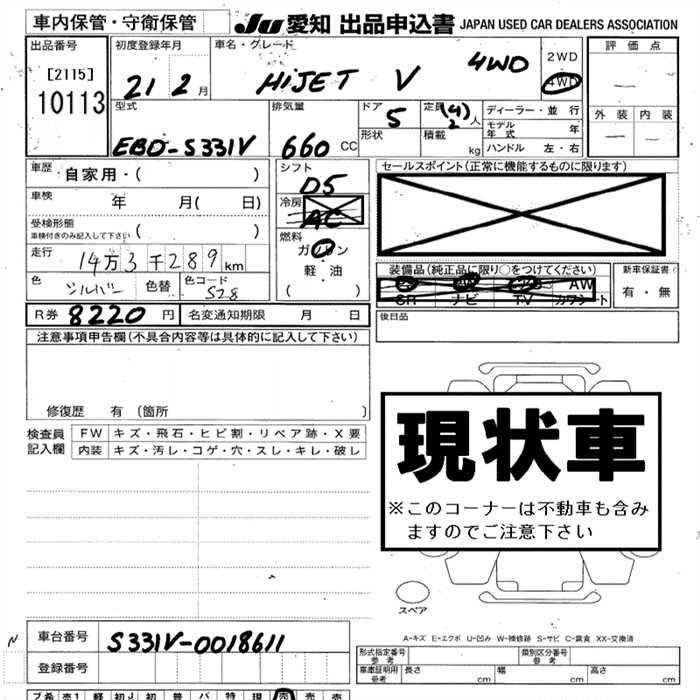 車内保管・守衛保管 JU 愛知 出品申込書 JAPAN USED CAR DEALERS ASSOCIATION
出品番号 初度登録年月 車名・グレード 2WD 評価点
[2115] 10113 21 2月 HIJET V 4WD 4WD
型式 排気量 ドア 定員 ディーラー・並行 外装 内装
EBD-S331V 660 CC 5 (4) 2 人 モデル年式 年
形状 積載 kg ハンドル 左・右
車歴 自家用・( ) シフト D5 セールスポイント(正常に機能するものに限ります)
車検 年 月( 日) 冷房 AC
受検形態 ( )
車検付きのみ記入して下さい
燃料 ガソリン
軽・油
( )
走行 14万3千289km
色 シルバー 色替 色コード S28
装備品(純正品に限り○をつけてください) 新車保証書
AW 有・無
SR ナビ TV カワシート
R券 8220円 名変通知期限 月 日 後日品
注意事項申告欄(不具合内容等は具体的に記入して下さい)
修復歴 有 (箇所 )
検査員記入欄 FW キズ・飛石・ヒビ割・リペア跡・X要
内装 キズ・汚レ・コゲ・穴・スレ・キレ・破レ
現状車
※このコーナーは不動車も含み
ますのでご注意下さい
スペア
A-キズ E-エクボ U-凹み W-補修跡 S-サビ C-腐食 XX-交換済
車台番号 S331V-0018611
登録番号
形式指定番号 参考 類別区分番号 参考
車庫証明用 参考 長さ cm 幅 cm 高さ cm